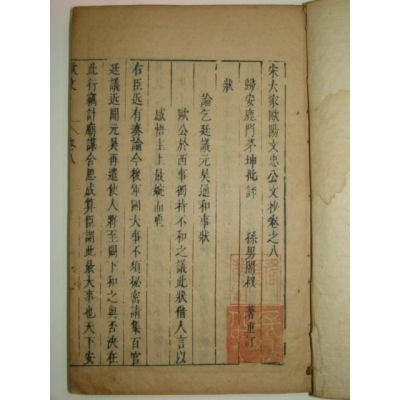 宋大家歐陽文忠公文抄卷之八
歸安鹿門茅坤批評
孫男闇叔著重訂
狀
論乞廷議元昊通和事狀
歐公於西事獨持不和之議此狀借人言以
感悟主上
右臣近有奏論今後軍國大事不須秘密請集百官
廷議近聞元昊再遣使人將至闕下和之與否決在
此行竊計廟謀合思成算臣謂此最大事也天下安